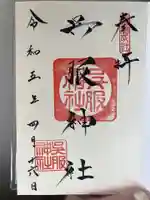 奉拝
呉服神社
令和五年四月十六日
呉服神社
呉服神社